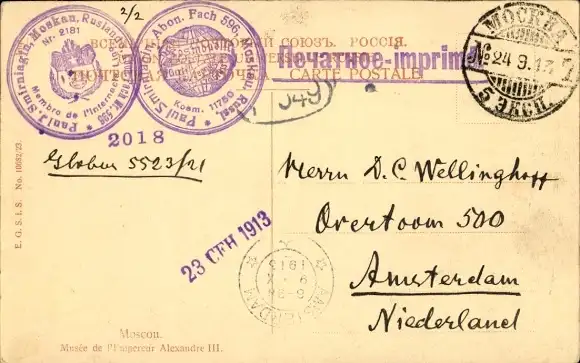 2/2
Paul Smirniagin, Moskau, Russland,
Nr. 2181
Membre de l'Internat.
Paul Smirniagin, Abon. Fach 596, Moskau, Russl.
Kosm. 11750
ВСЕМІРНЫЙ ПОЧТОВЫЙ СОЮЗЪ. РОССІЯ.
Печатное-imprimé
CARTE POSTALE
МОСКВА
24 9. 13
5 ЭКСП.
2018
Globus 5523/21
Herrn D. C. Wellinghoff
Overtoom 500
Amsterdam
Niederland
23 СЕН 1913
AMSTERDAM
1913
E. G. S. I. S. No. 10682/23.
Moscou.
Musée de l'Empereur Alexandre III.